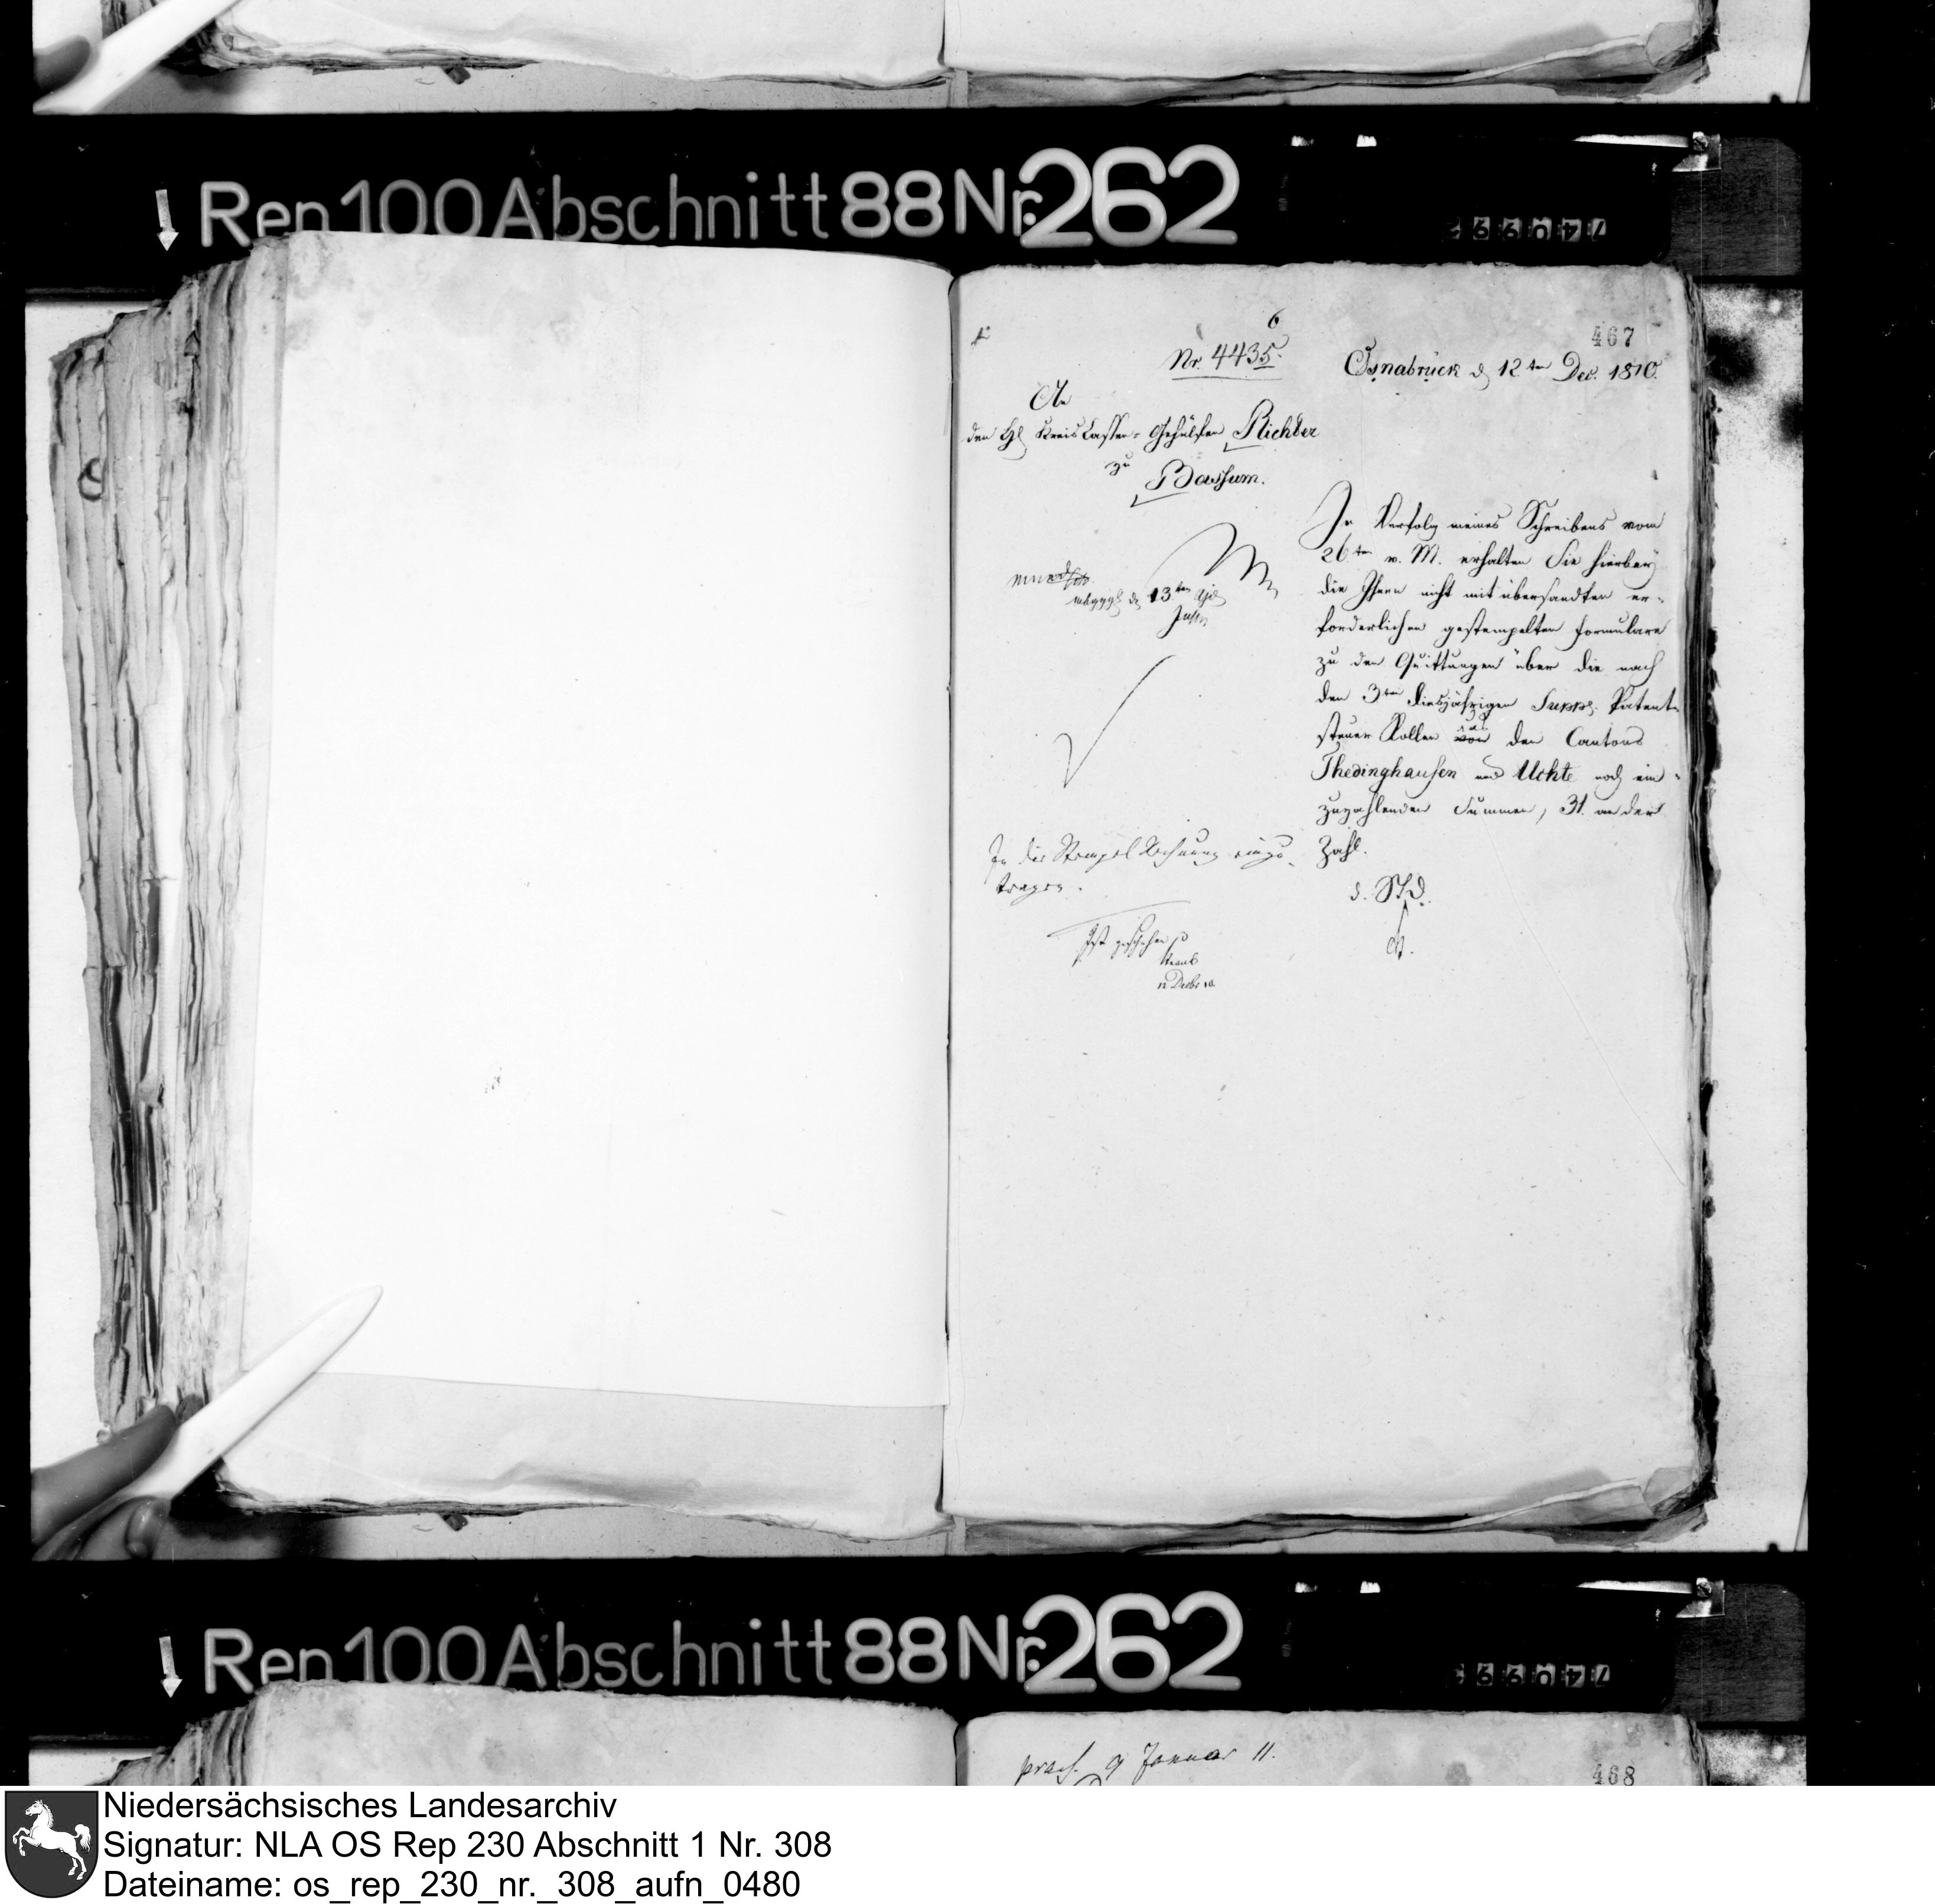 Rep 100 Abschnitt 88 Nr. 262
467
6
Nr. 4435.
Osnabrück d 12ten Dec. 1810.
An
den H. Kreis Cassen-Gehülfen Richter
zu
Bassum.
In Verfolg meines Schreibens vom
26ten v. M. erhalten Sie hierbey
die Ihnen nicht mit übersandten er-
forderlichen gestempelten Formulare
zu den Quittungen über die nach
den 3ten diesjährigen Suppl. Patent-
steuer Rollen von den Cantons
Thedinghausen und Uchte noch ein-
zuzahlenden Summen, 31. an der
Zahl.
d. St. D.
13ten
In die Stempel Rechnung einzu-
tragen.
Ist geschehen
12 Decbr 10.
Rep 100 Abschnitt 88 Nr. 262
praes. 9 Januar 11.
468
Niedersächsisches Landesarchiv
Signatur: NLA OS Rep 230 Abschnitt 1 Nr. 308
Dateiname: os_rep_230_nr._308_aufn_0480